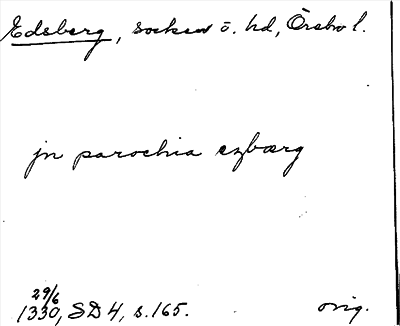 Edsberg, socken o. hd, Örebro l.
jn parochia ezbærg
29/6
1330, SD 4, s. 165. orig.